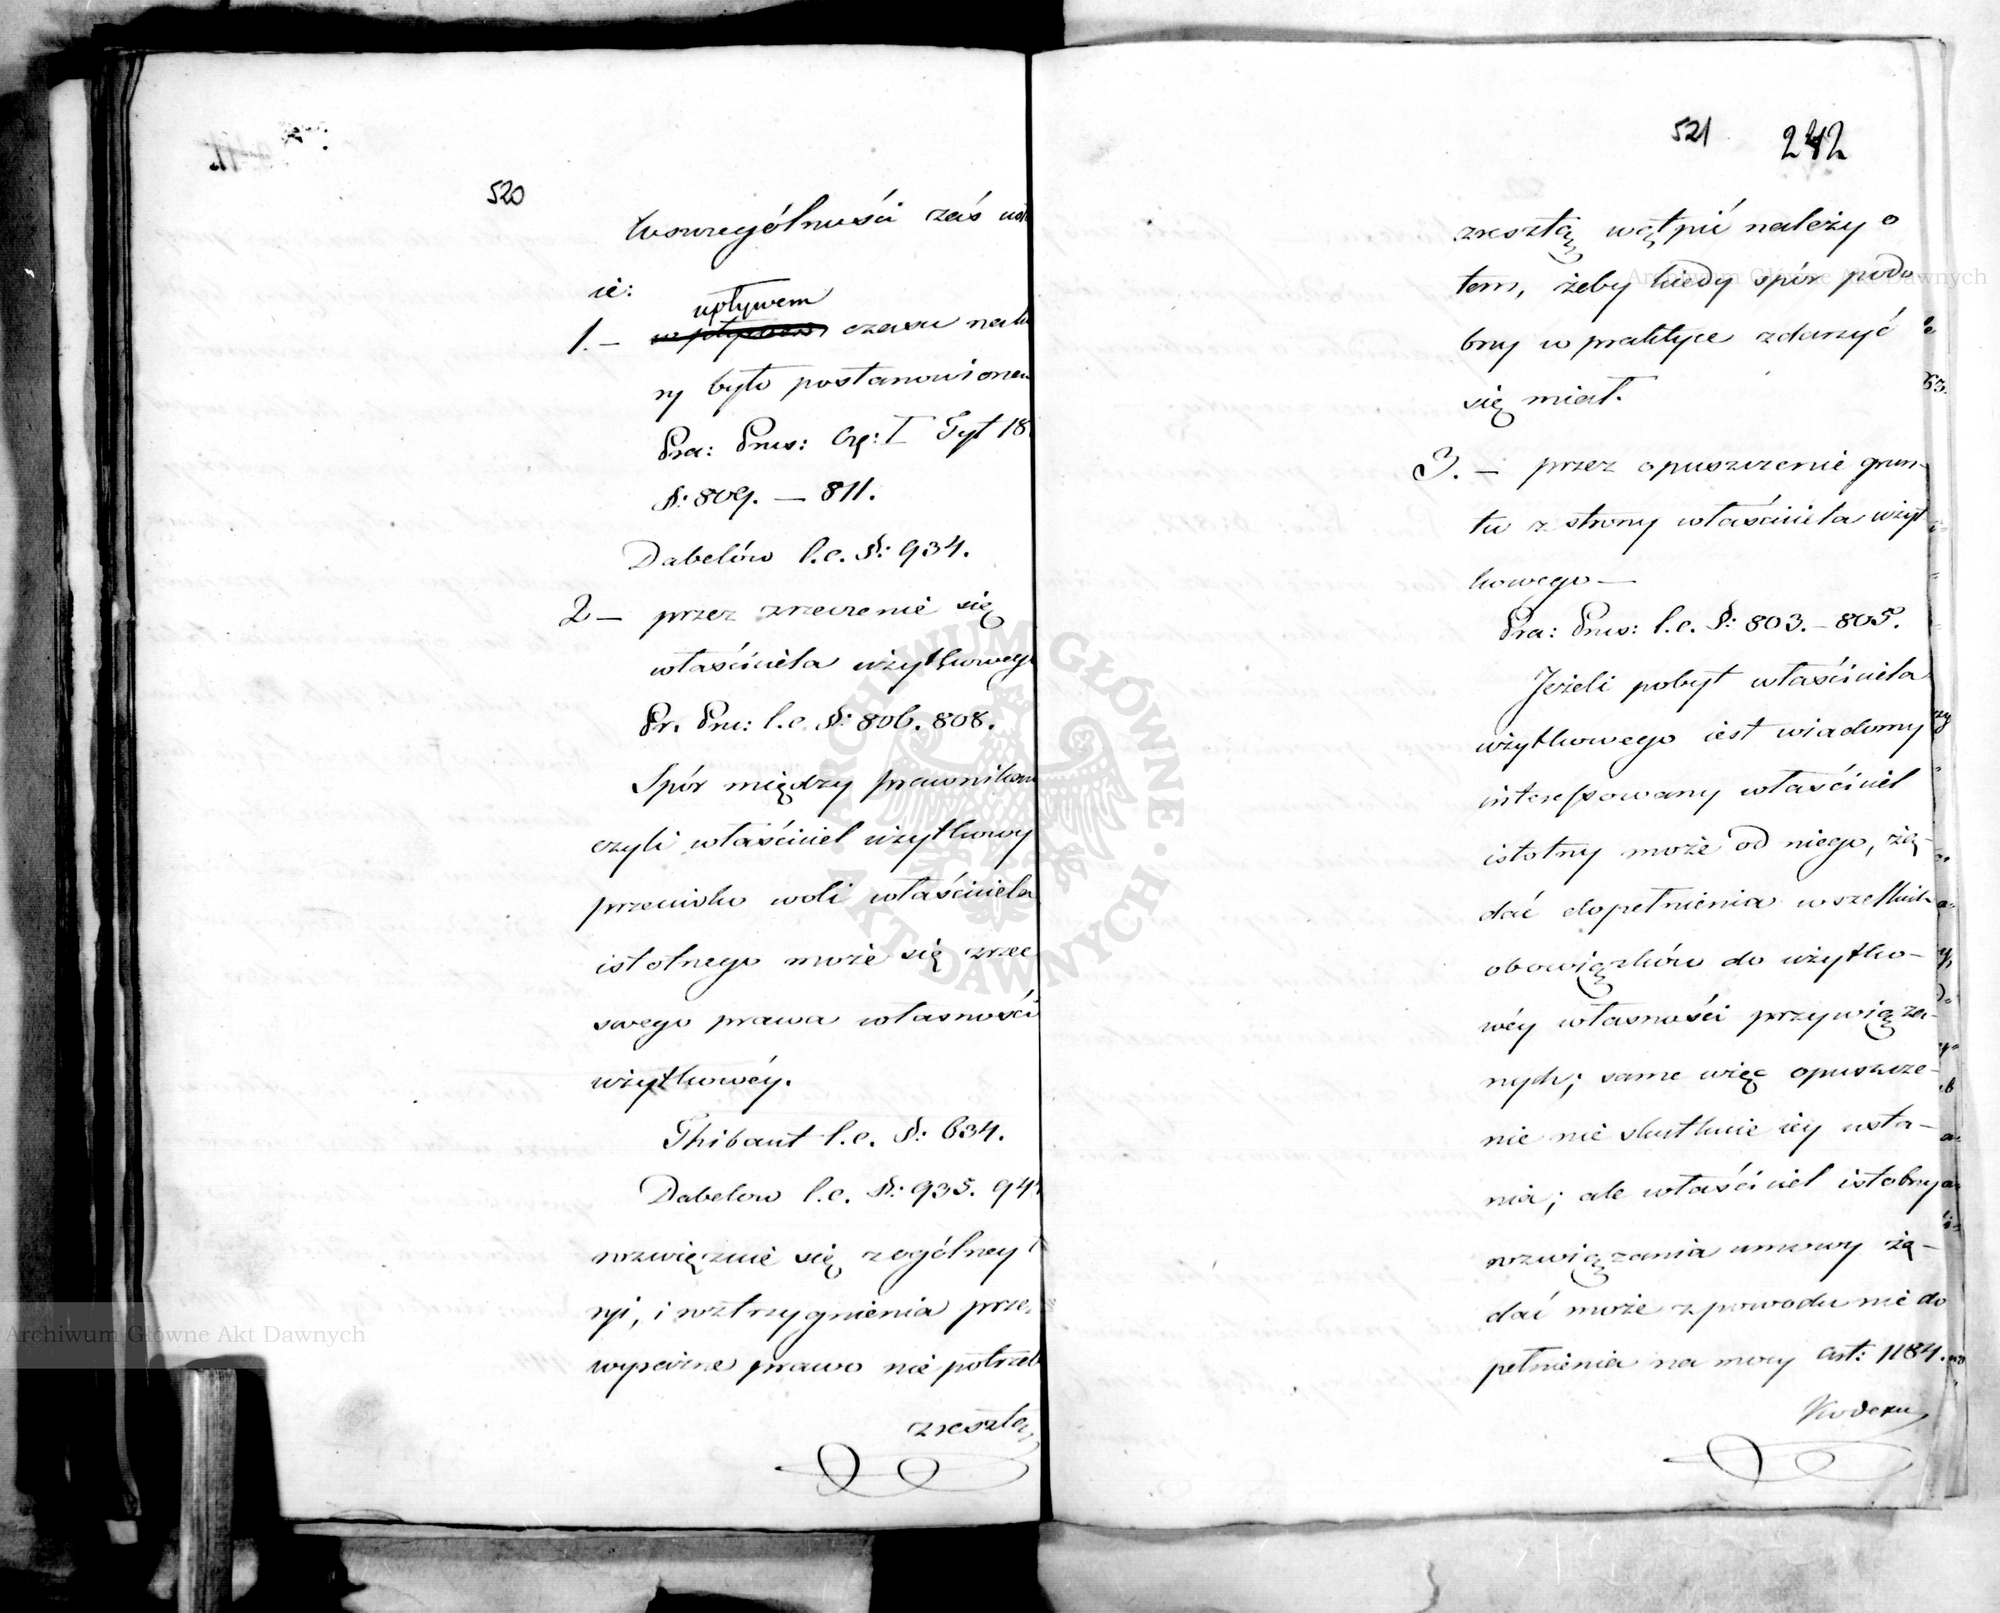 520
W szczególności zaś ust
ie:
upływem
1. — w pływem czasu na kt
ry było postanowionem
Pra: Prus: Czę: I Tyt 18
§: 809. — 811.
Dabelów l. c. §: 934.
2 — przez zrzeczenie się
właściciela użytkowego
Pr. Pru: l. c. §: 806. 808.
Spór między prawnikam
czyli właściciel użytkowy
przeciwko woli właściciela
istotnego może się zrzec
swego prawa własności
użytkowéy.
Thibaut l. c. §: 634.
Dabelow l. c. §: 935. 94
rozwięzuie się z ogólney t
ryi, i roztrzygnienia prze.
wyraźne prawo nie potrzeb
zresztą
521 242
zresztą wątpić należy o
tem, żeby kiedy spór podo
bny w praktyce zdarzyć
się miał.
3. — przez opuszczenie grun-
tu z strony właściciela użyt
kowego —
Pra: Prus: l. c. §: 803. – 805.
Jeżeli pobyt właściciela
użytkowego iest wiadomy
interessowany właściciel
istotny może od niego, żą-
dać dopełnienia wszelkich
obowiązków do użytko-
wéy własności przywiąza-
nych; same więc opuszcze-
nie nie skutkuie iéy usta-
nia; ale właściciel istotny
rozwiązania umowy żą-
dać może z powodu nie do
pełnienia na mocy art: 1184.
Kodexu
Archiwum Główne Akt Dawnych
Archiwum Główne Akt Dawnych
ARCHIWUM GŁÓWNE · AKT DAWNYCH ·